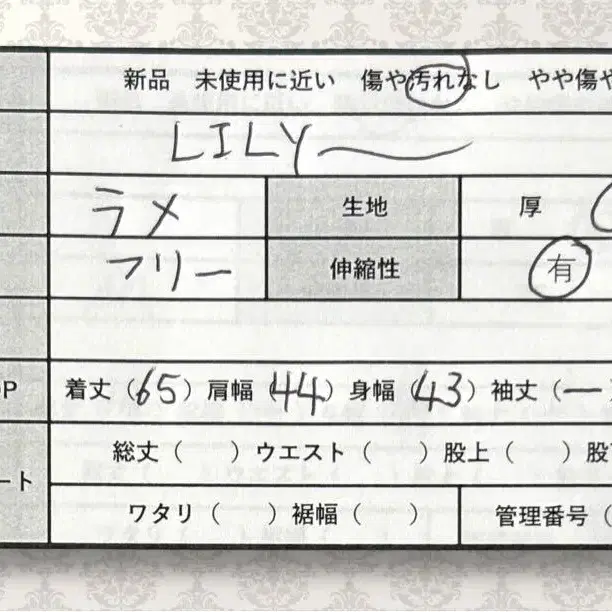 新品 未使用に近い 傷や汚れなし やや傷や
LILY
ラメ 生地 厚
フリー 伸縮性 有
OP 着丈（65）肩幅（44）身幅（43）袖丈（ー）
総丈（ ）ウエスト（ ）股上（ ）股下
ート
ワタリ（ ）裾幅（ ） 管理番号（